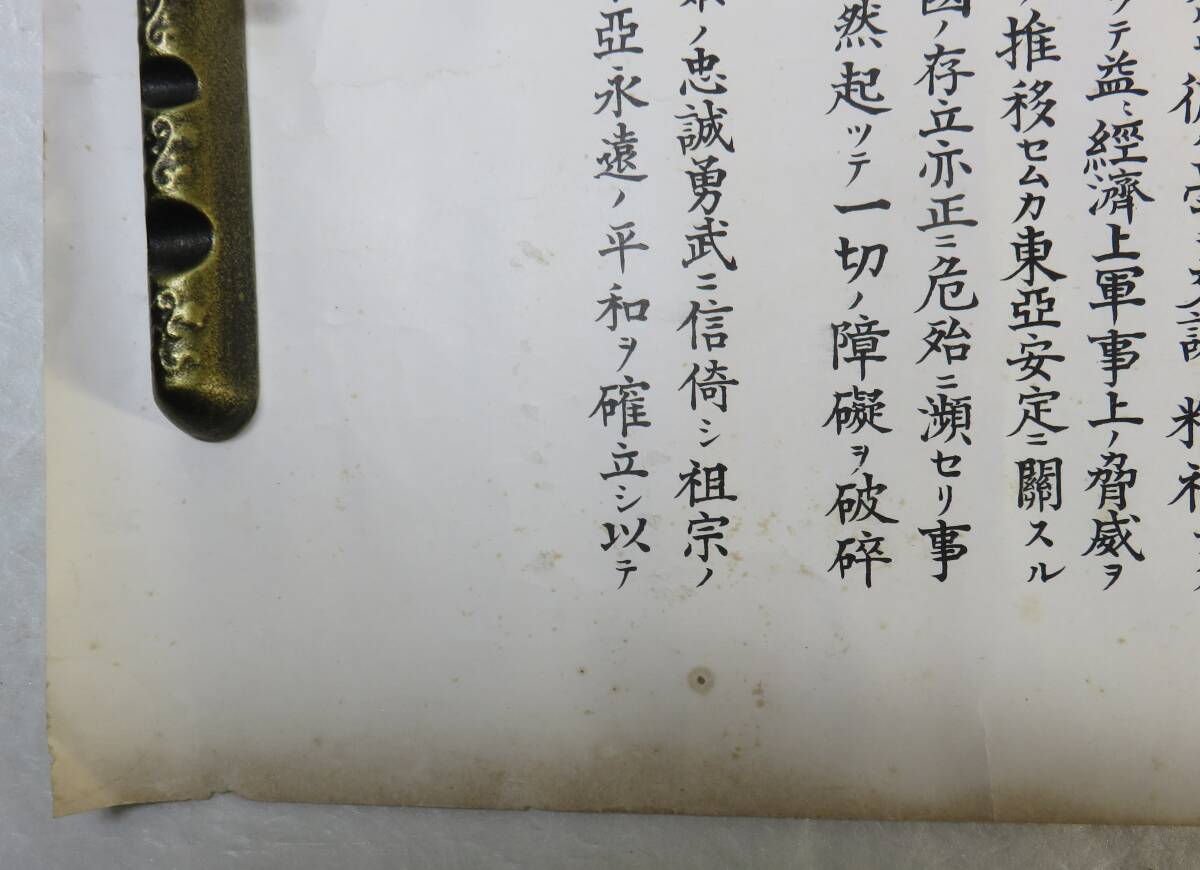 ッテ益〻經濟上軍事上ノ脅威ヲ
推移セムカ東亞安定ニ關スル
國ノ存立亦正ニ危殆ニ瀕セリ事
然起ッテ一切ノ障礙ヲ破碎
ノ忠誠勇武ニ信倚シ祖宗ノ
亞永遠ノ平和ヲ確立シ以テ